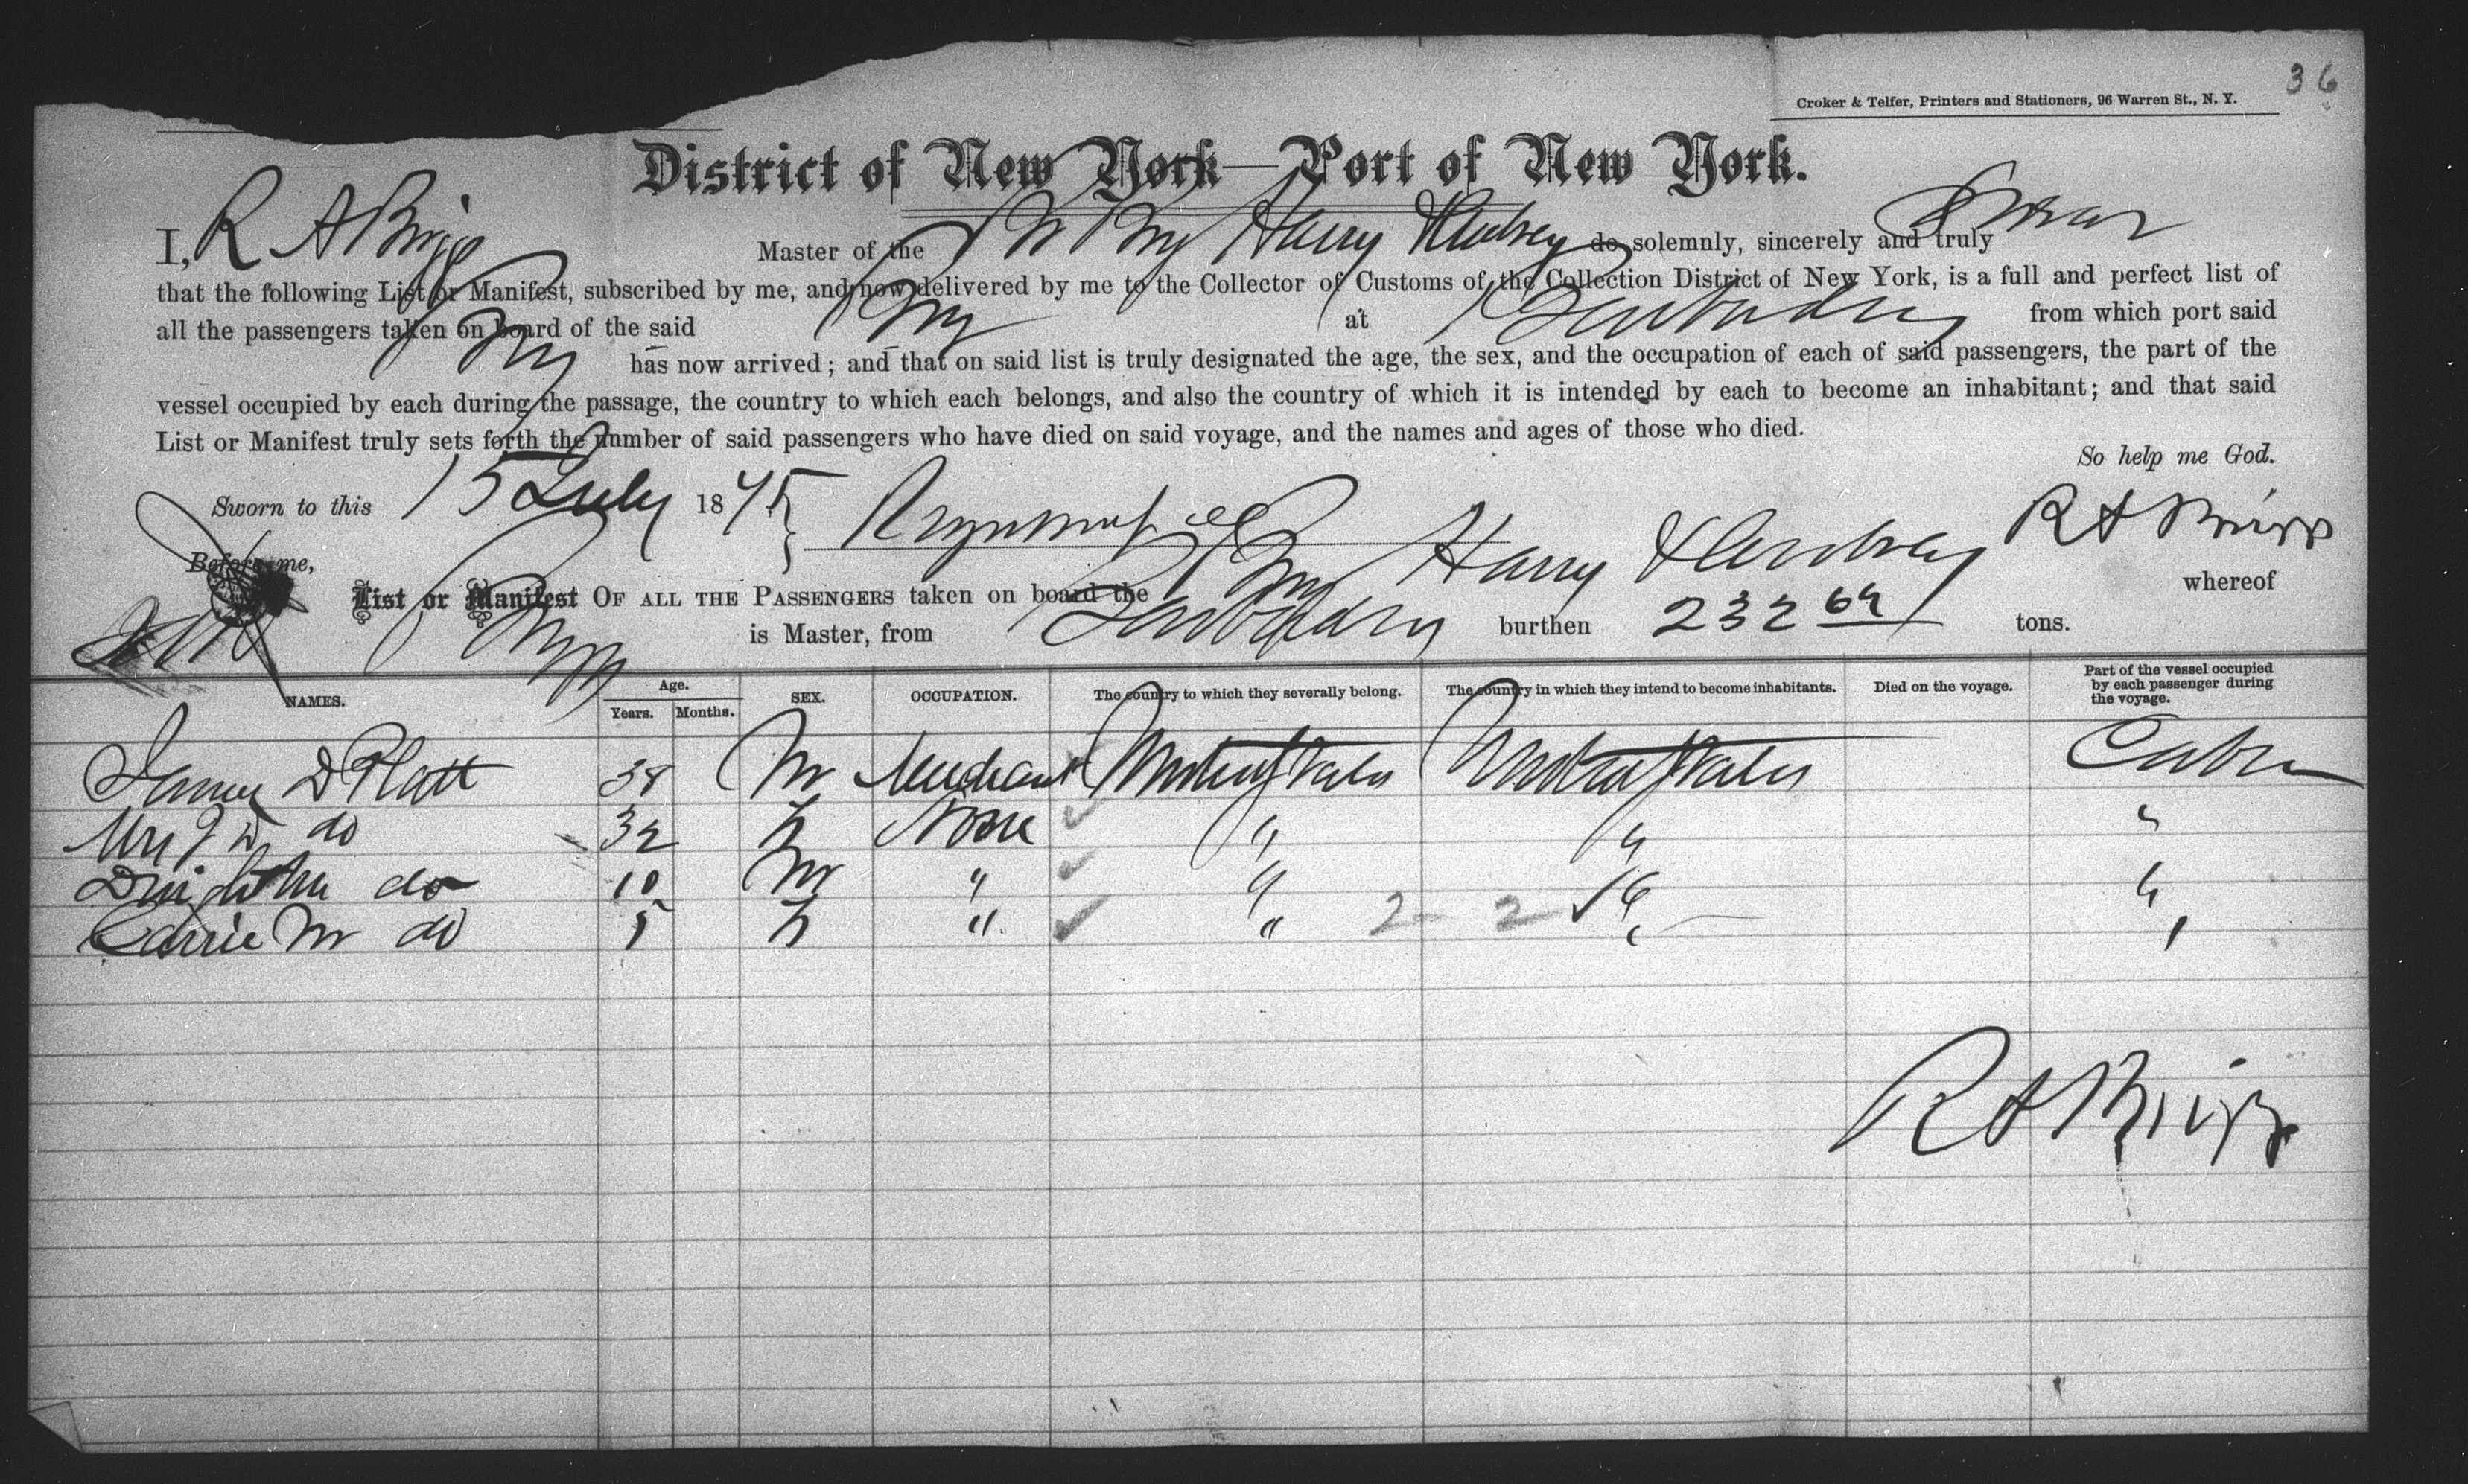 36
Croker & Telfer, Printers and Stationers, 96 Warren St., N. Y.
District of New York—Port of New York.
I, R A Briggs Master of the Brig Harry do solemnly, sincerely and truly Swear
that the following List or Manifest, subscribed by me, and now delivered by me to the Collector of Customs of the Collection District of New York, is a full and perfect list of
all the passengers taken on board of the said Brig at from which port said
Brig has now arrived; and that on said list is truly designated the age, the sex, and the occupation of each of said passengers, the part of the
vessel occupied by each during the passage, the country to which each belongs, and also the country of which it is intended by each to become an inhabitant; and that said
List or Manifest truly sets forth the number of said passengers who have died on said voyage, and the names and ages of those who died.
So help me God.
Sworn to this 15 July 1875 R A Briggs
Before me,
List or Manifest OF ALL THE PASSENGERS taken on board the Brig Harry whereof
Briggs is Master, from burthen 232 64 tons.
NAMES. Age. Years. Months. SEX. OCCUPATION. The country to which they severally belong. The country in which they intend to become inhabitants. Died on the voyage. Part of the vessel occupied by each passenger during the voyage.
James D Platt 38 M Merchant United States United States Cabin
Mrs J D do 32 F None " " "
do 10 M " " " "
Carrie M do 5 F " " 2 2 " "
R A Briggs